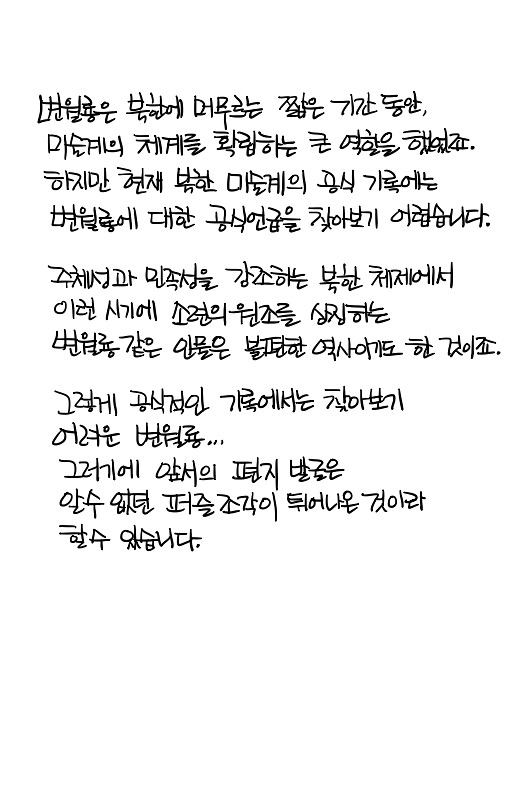 변월룡은 북한에 머무르는 짧은 기간 동안,
미술계의 체계를 확립하는 큰 역할을 했었죠.
하지만 현재 북한 미술계의 공식 기록에는
변월룡에 대한 공식언급을 찾아보기 어렵습니다.
주체성과 민족성을 강조하는 북한 체제에서
이런 시기에 소련의 원조를 상징하는
변월룡 같은 인물은 불편한 역사이기도 한 것이죠.
그렇게 공식적인 기록에서는 찾아보기
어려운 변월룡...
그러기에 앞서의 편지 발굴은
알 수 없던 퍼즐 조각이 튀어나온 것이라
할 수 있습니다.